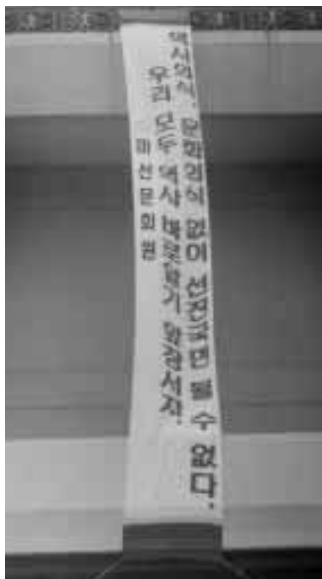 역사의식, 문화의식 없이 선진국민 될 수 없다.
우리 모두 역사 바로알기 앞장서자.
마산문화원